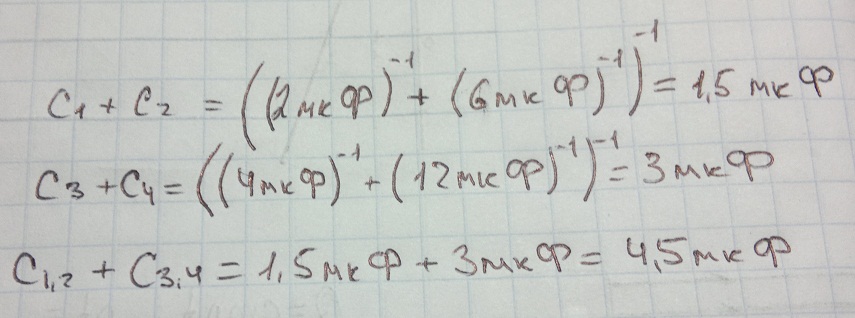 C₁ + C₂ = ((2мкФ)⁻¹ + (6мкФ)⁻¹)⁻¹ = 1,5 мкФ
C₃ + C₄ = ((4мкФ)⁻¹ + (12мкФ)⁻¹)⁻¹ = 3мкФ
C₁,₂ + C₃,₄ = 1,5мкФ + 3мкФ = 4,5мкФ